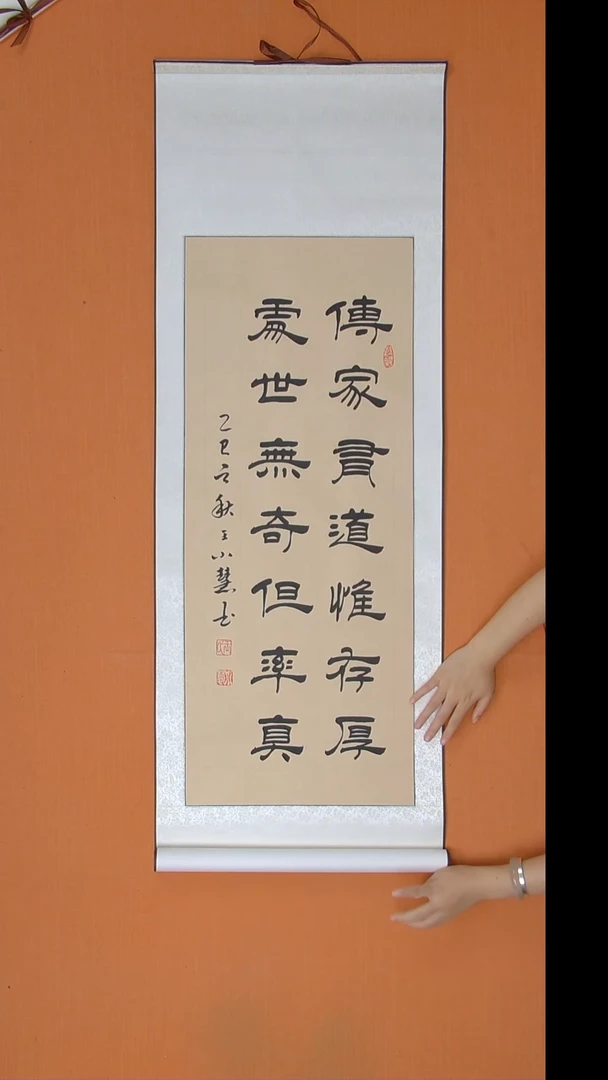 傳家有道惟存厚
處世無奇但率真
乙巳之秋王小慧书